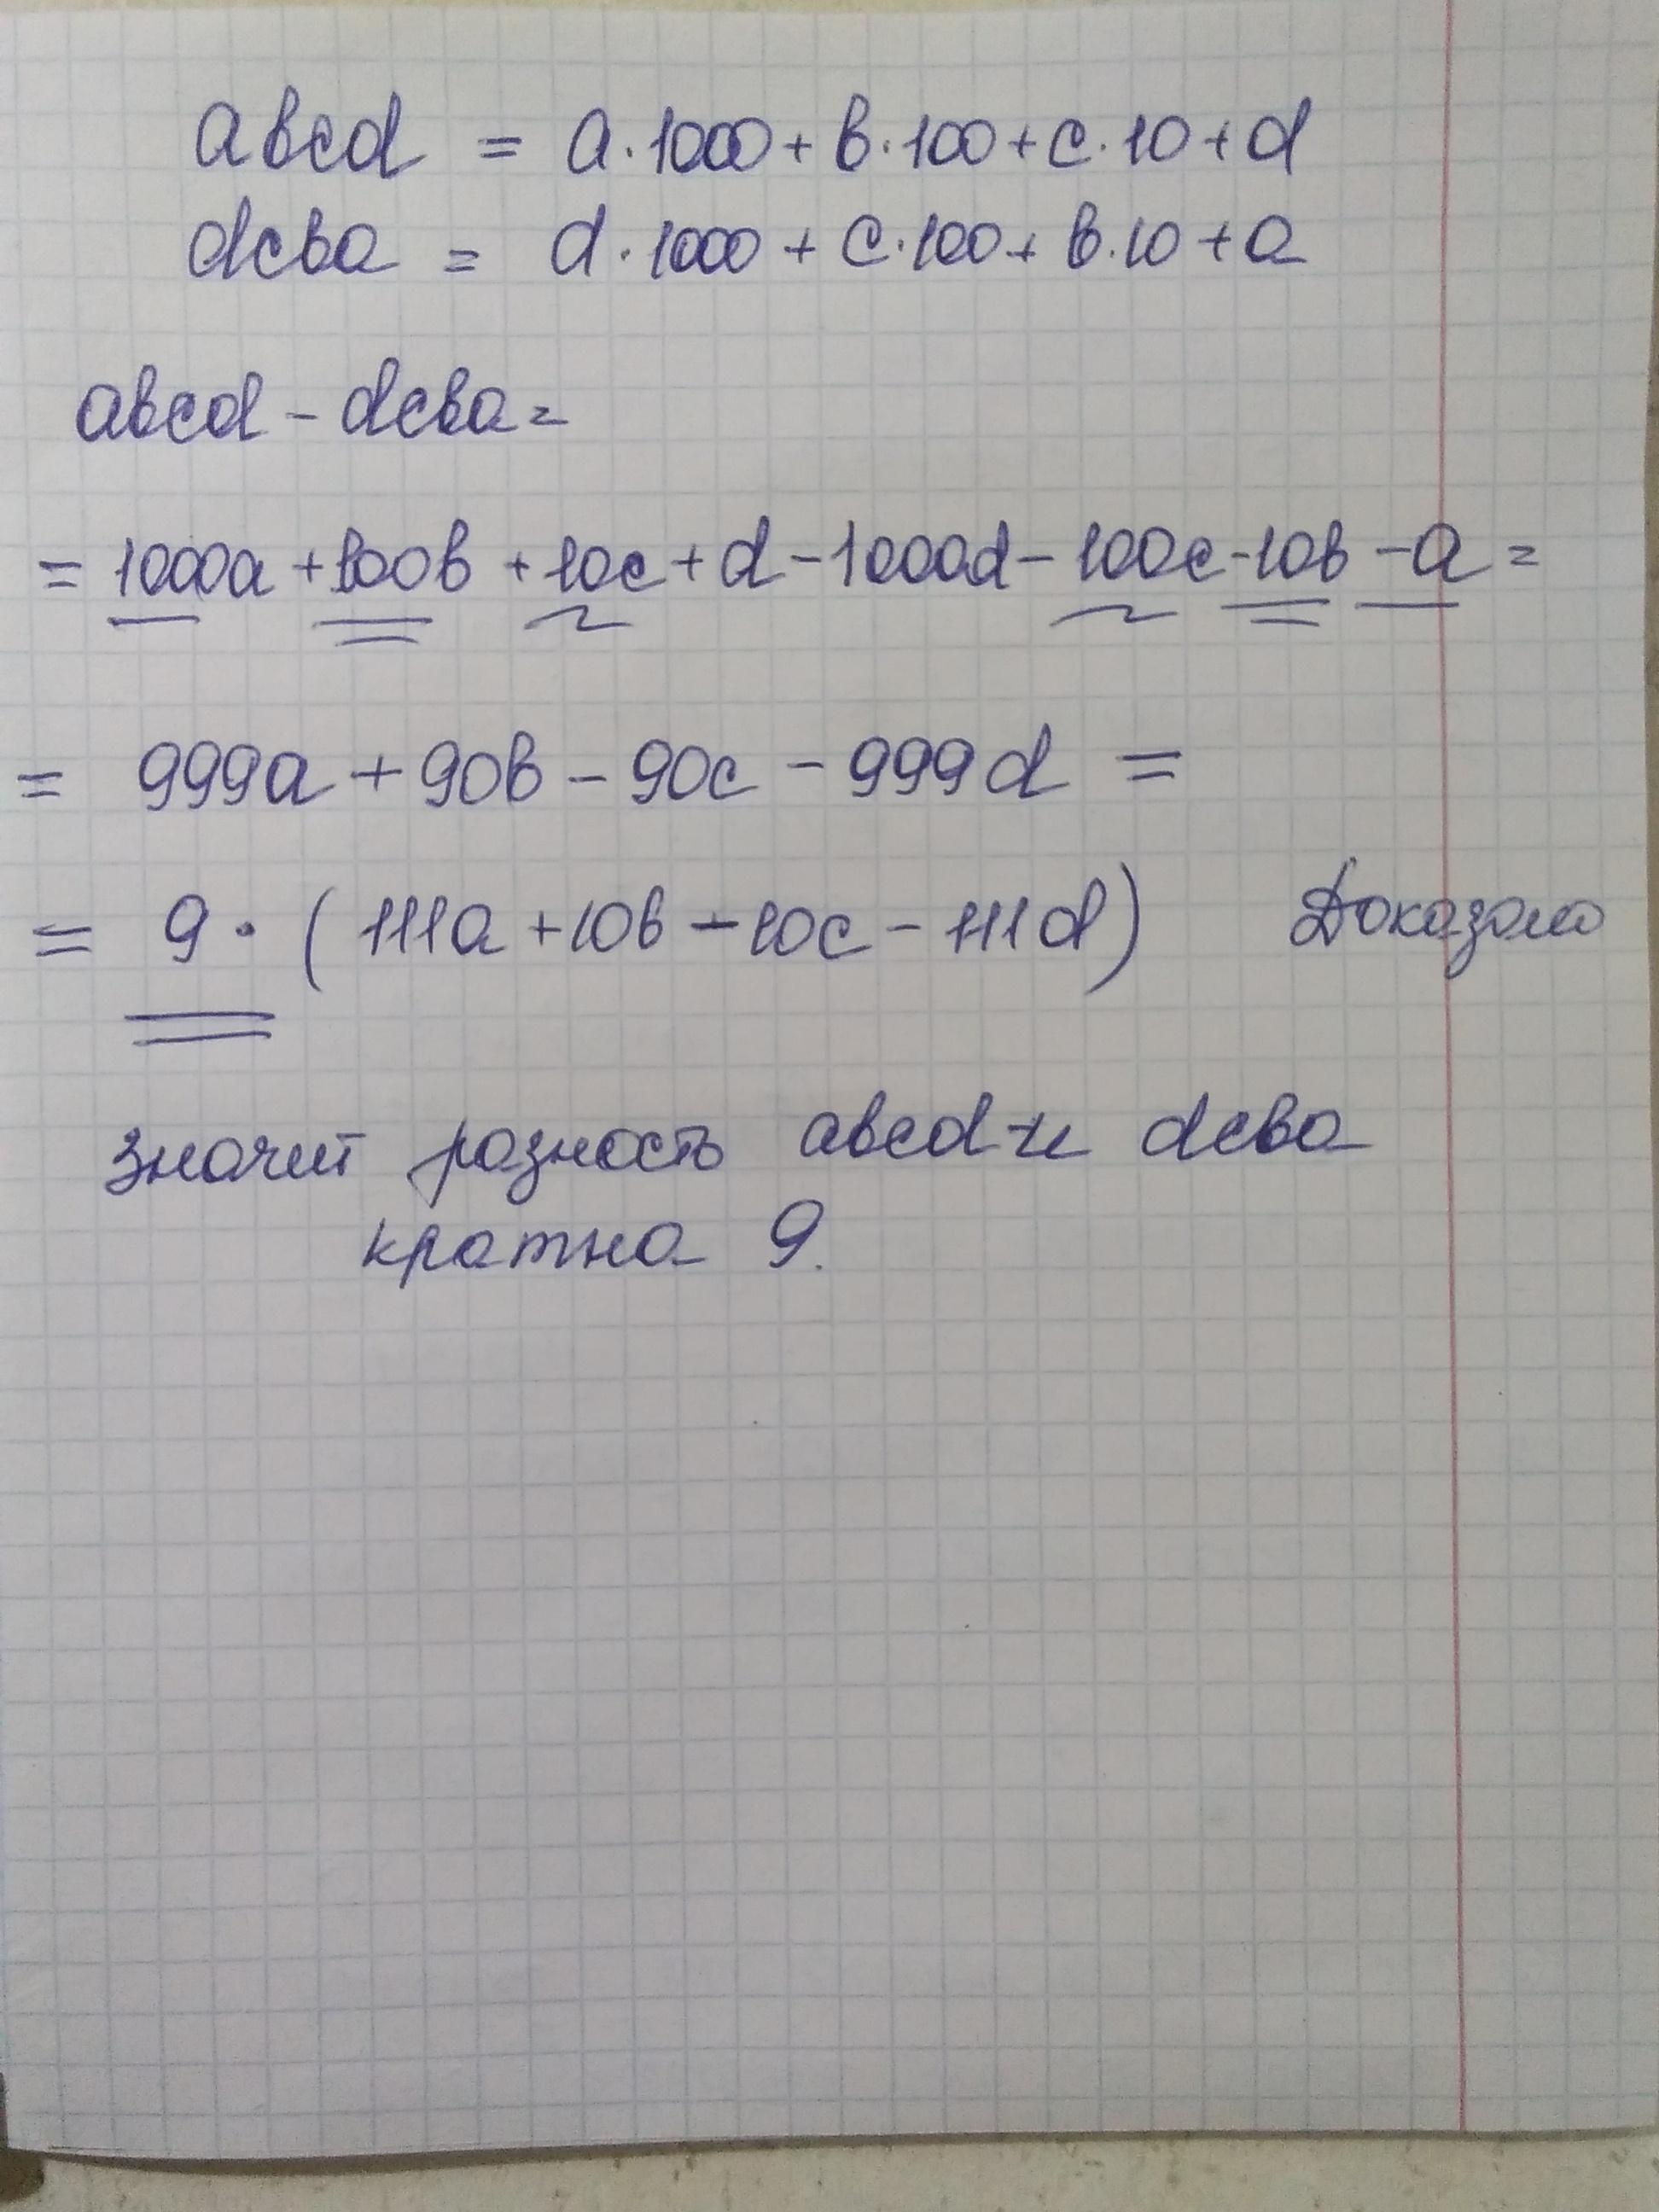 abcd = a·1000 + b·100 + c·10 + d
dcba = d·1000 + c·100 + b·10 + a
abcd - dcba =
= 1000a + 100b + 10c + d - 1000d - 100c - 10b - a =
= 999a + 90b - 90c - 999d =
= 9·(111a + 10b - 10c - 111d) Доказано
значит разность abcd и dcba
кратна 9.